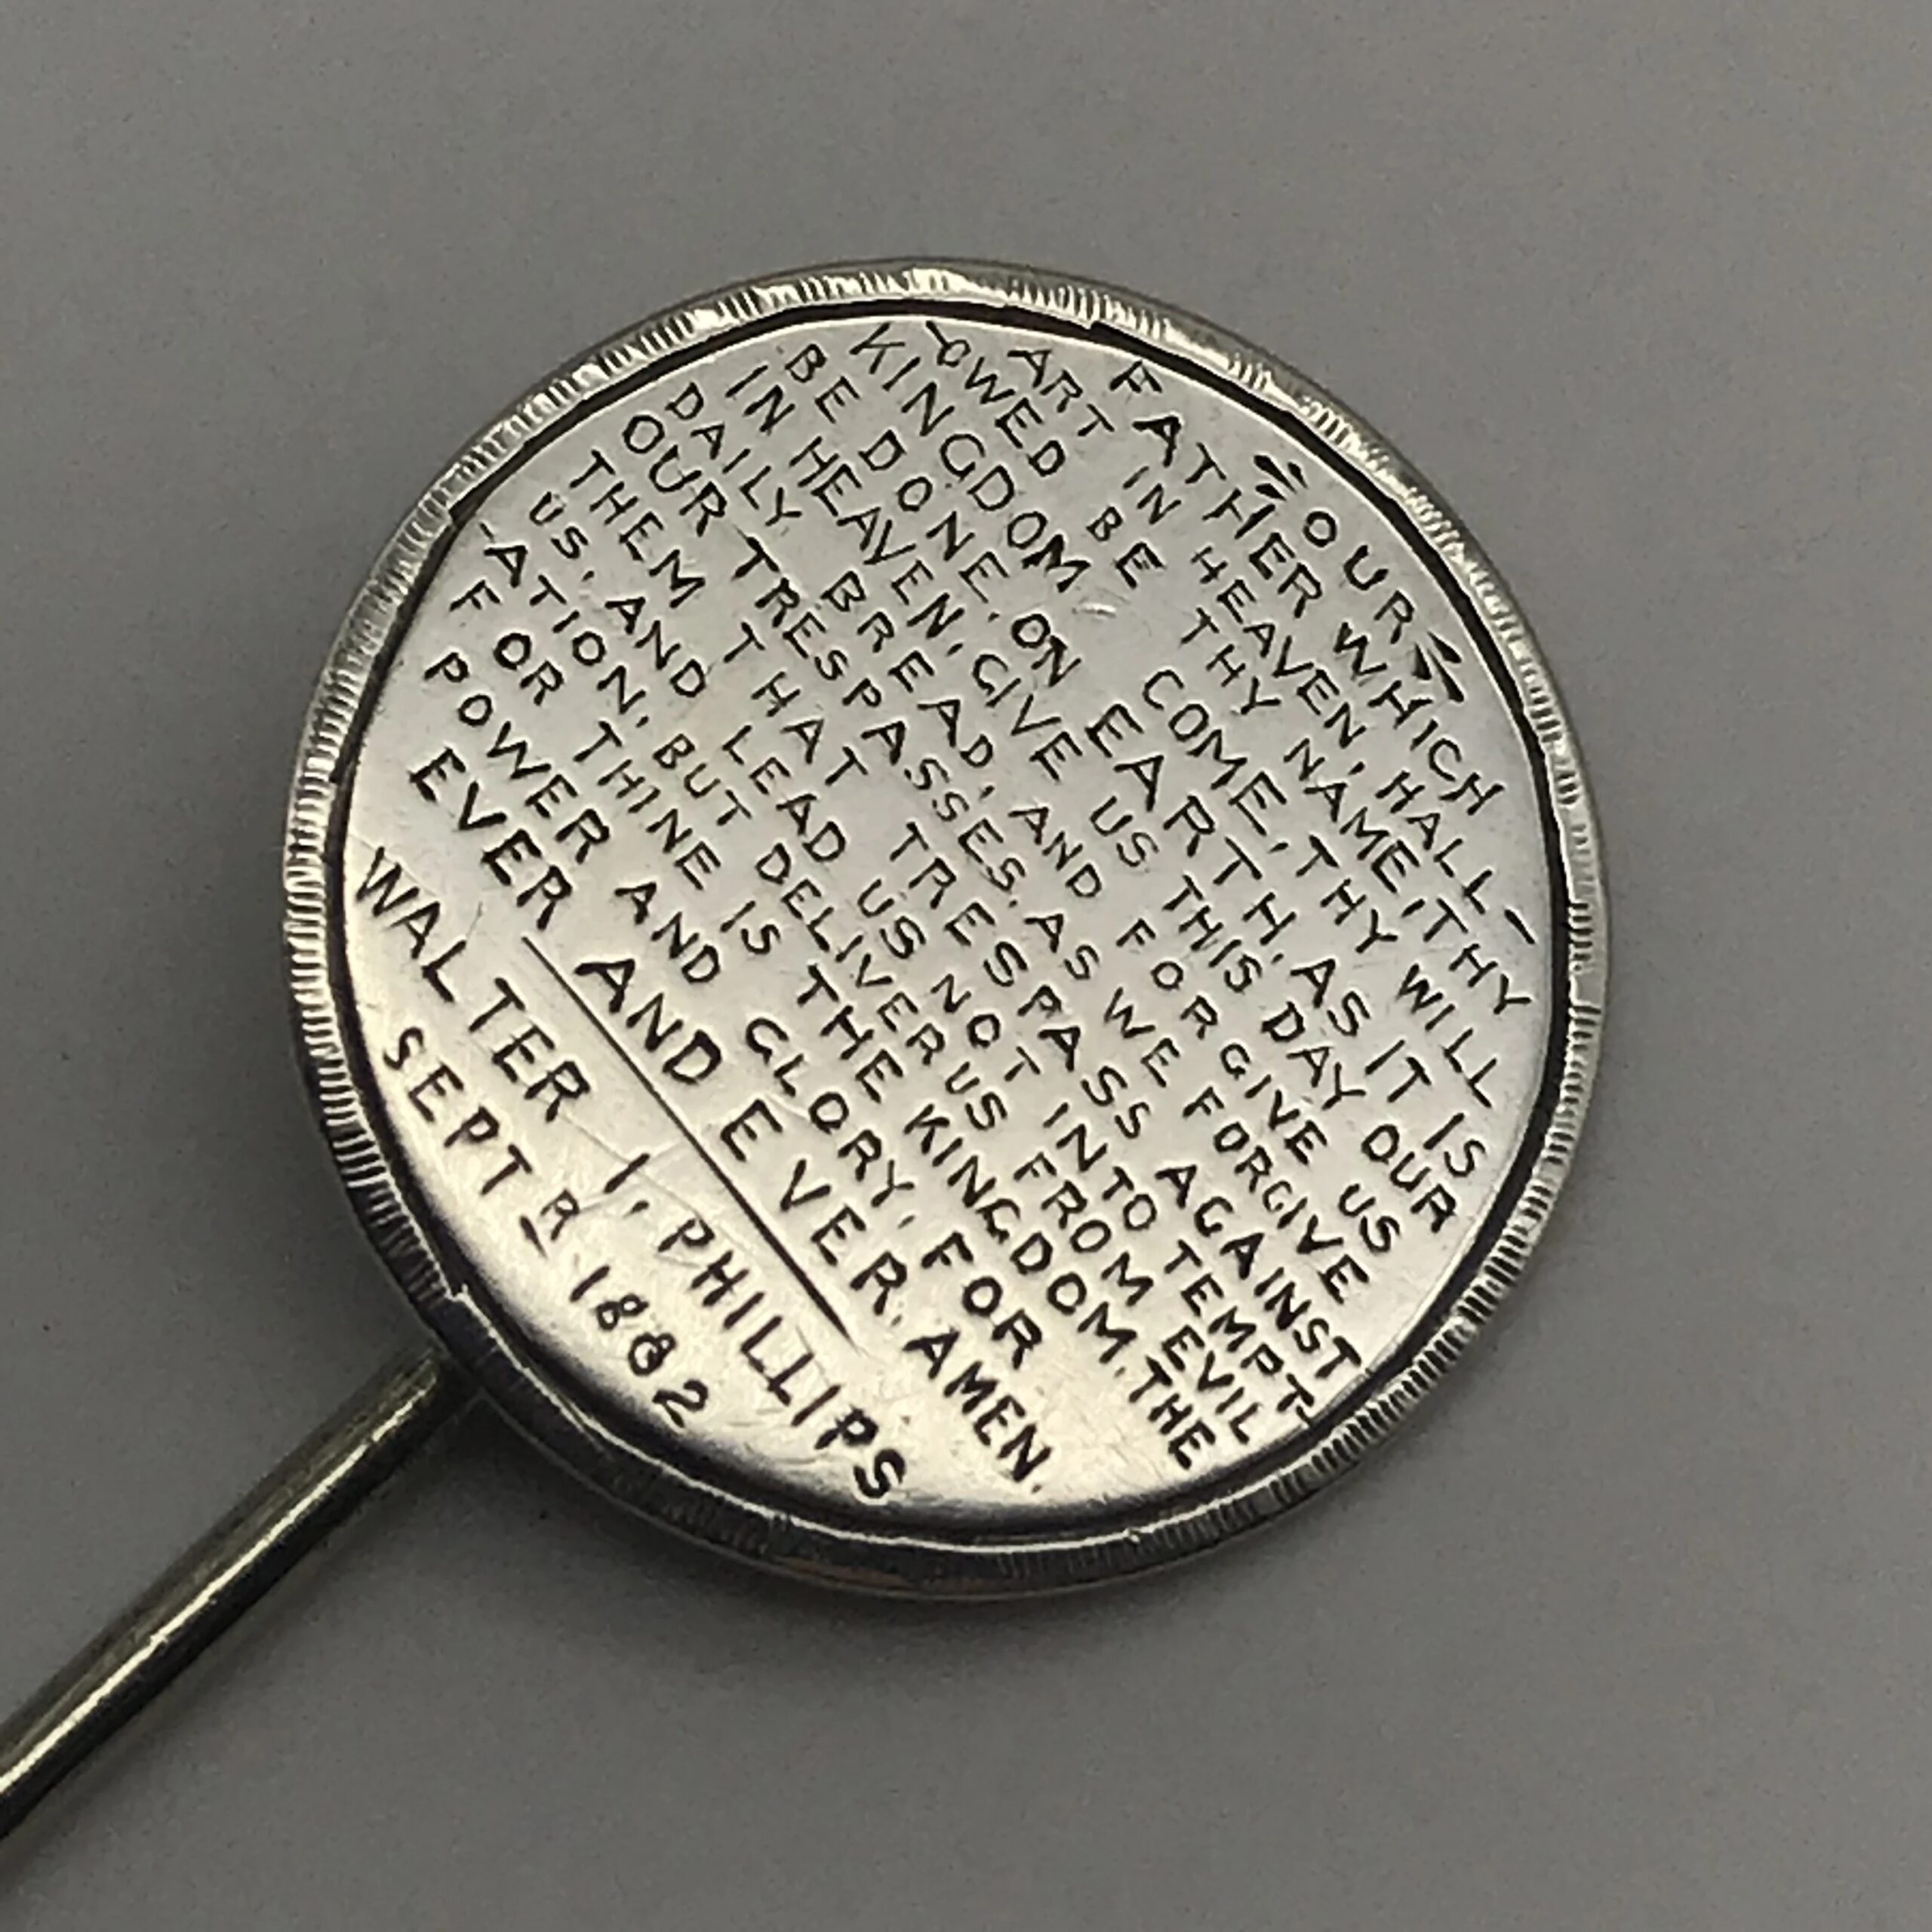 OUR
FATHER WHICH
ART IN HEAVEN, HALL-
OWED BE THY NAME, THY
KINGDOM COME, THY WILL
BE DONE, ON EARTH, AS IT IS
IN HEAVEN, GIVE US THIS DAY OUR
DAILY BREAD, AND FOR GIVE US
OUR TRESPASSES, AS WE FORGIVE
THEM THAT TRESPASS AGAINST
US, AND LEAD US NOT INTO TEMPT
-ATION, BUT DELIVER US FROM EVIL
F OR THINE IS THE KINGDOM, THE
POWER AND GLORY, FOR
EVER AND EVER, AMEN.
WALTER I, PHILLIPS
SEPT R 1882